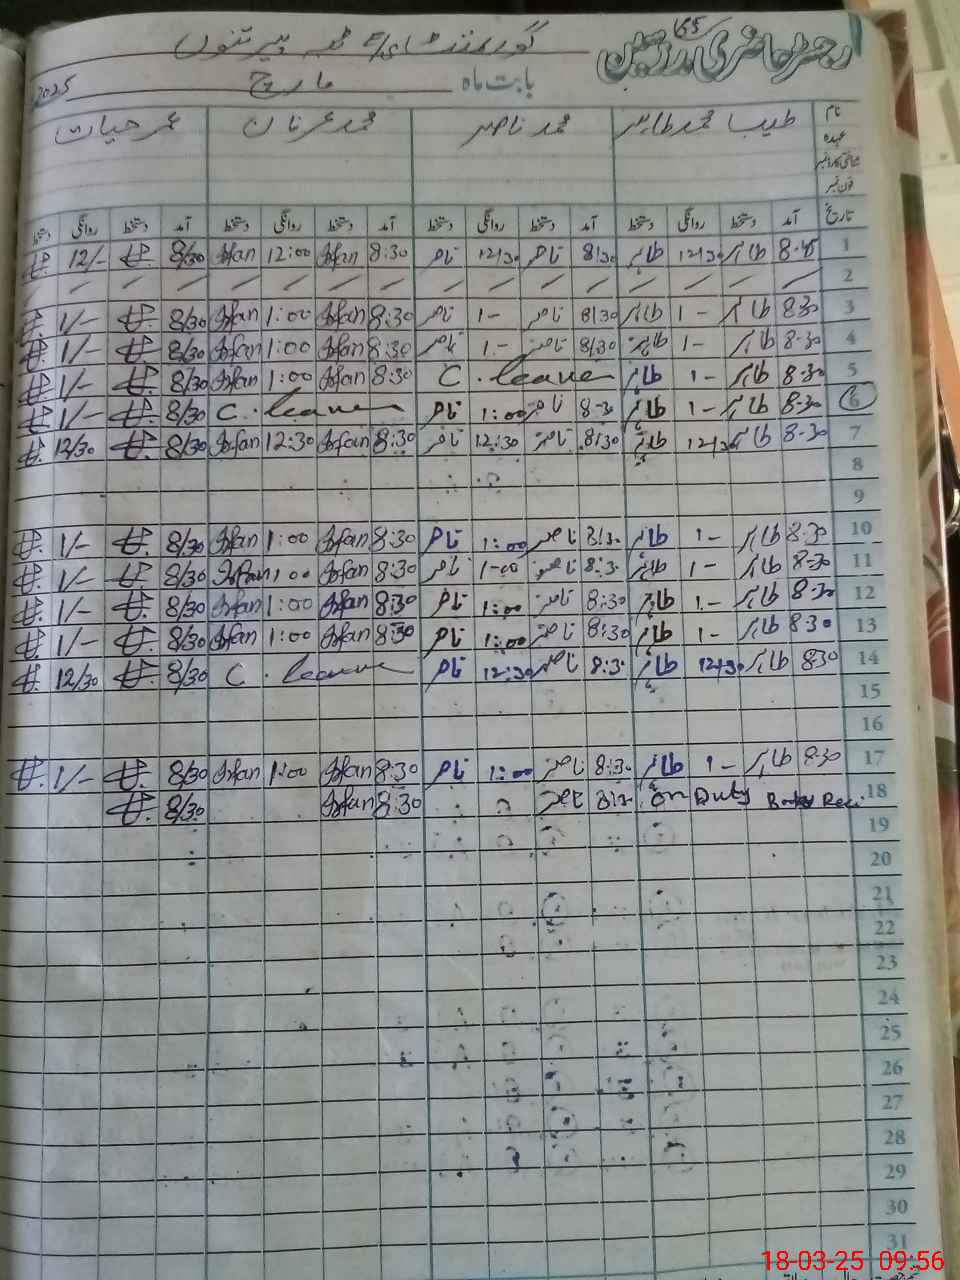 رجسٹر حاضری مدرسین
گورنمنٹ
بابت ماہ مارچ 2025
نام طیب محمد طاہر محمد ناصر محمد عرفان عمر حیات
عہدہ
فون نمبر
تاریخ آمد دستخط روانگی دستخط آمد دستخط روانگی دستخط آمد دستخط روانگی دستخط آمد دستخط روانگی دستخط
1 8-45 طاہر 12130 طاہر 8:30 ناصر 12130 ناصر 8:30 Irfan 12:00 Irfan 8/30 12/-
2 / / / / / / / / / / / / / / / /
3 8-30 طاہر 1- طاہر 8130 ناصر 1- ناصر 8:30 Irfan 1:00 Irfan 8/30 1/-
4 8-30 طاہر 1- طاہر 8/30 ناصر 1- ناصر 8:30 Irfan 1:00 Irfan 8/30 1/-
5 8-30 طاہر 1- طاہر C. leave 8:30 Irfan 1:00 Irfan 8/30 1/-
6 8-30 طاہر 1- طاہر 8-30 ناصر 1:00 ناصر C. leave 8/30 1/-
7 8-30 طاہر 12130 طاہر 8130 ناصر 12:30 ناصر 8:30 Irfan 12:30 Irfan 8/30 12/30
8
9
10 8-30 طاہر 1- طاہر 8:30 ناصر 1:00 ناصر 8:30 Irfan 1:00 Irfan 8/30 1/-
11 8-30 طاہر 1- طاہر 8:30 ناصر 1-00 ناصر 8:30 Irfan 1:00 Irfan 8/30 1/-
12 8-30 طاہر 1- طاہر 8:30 ناصر 1:00 ناصر 8:30 Irfan 1:00 Irfan 8/30 1/-
13 8-30 طاہر 1- طاہر 8:30 ناصر 1:00 ناصر 8:30 Irfan 1:00 Irfan 8/30 1/-
14 8-30 طاہر 12130 طاہر 8:30 ناصر 12:30 ناصر C. leave 8/30 12/30
15
16
17 8-30 طاہر 1- طاہر 8:30 ناصر 1:00 ناصر 8:30 Irfan 1:00 Irfan 8/30 1/-
18 On Duty ناصر 8:30 Irfan 8/30
19
20
21
22
23
24
25
26
27
28
29
30
31
18-03-25 09:56